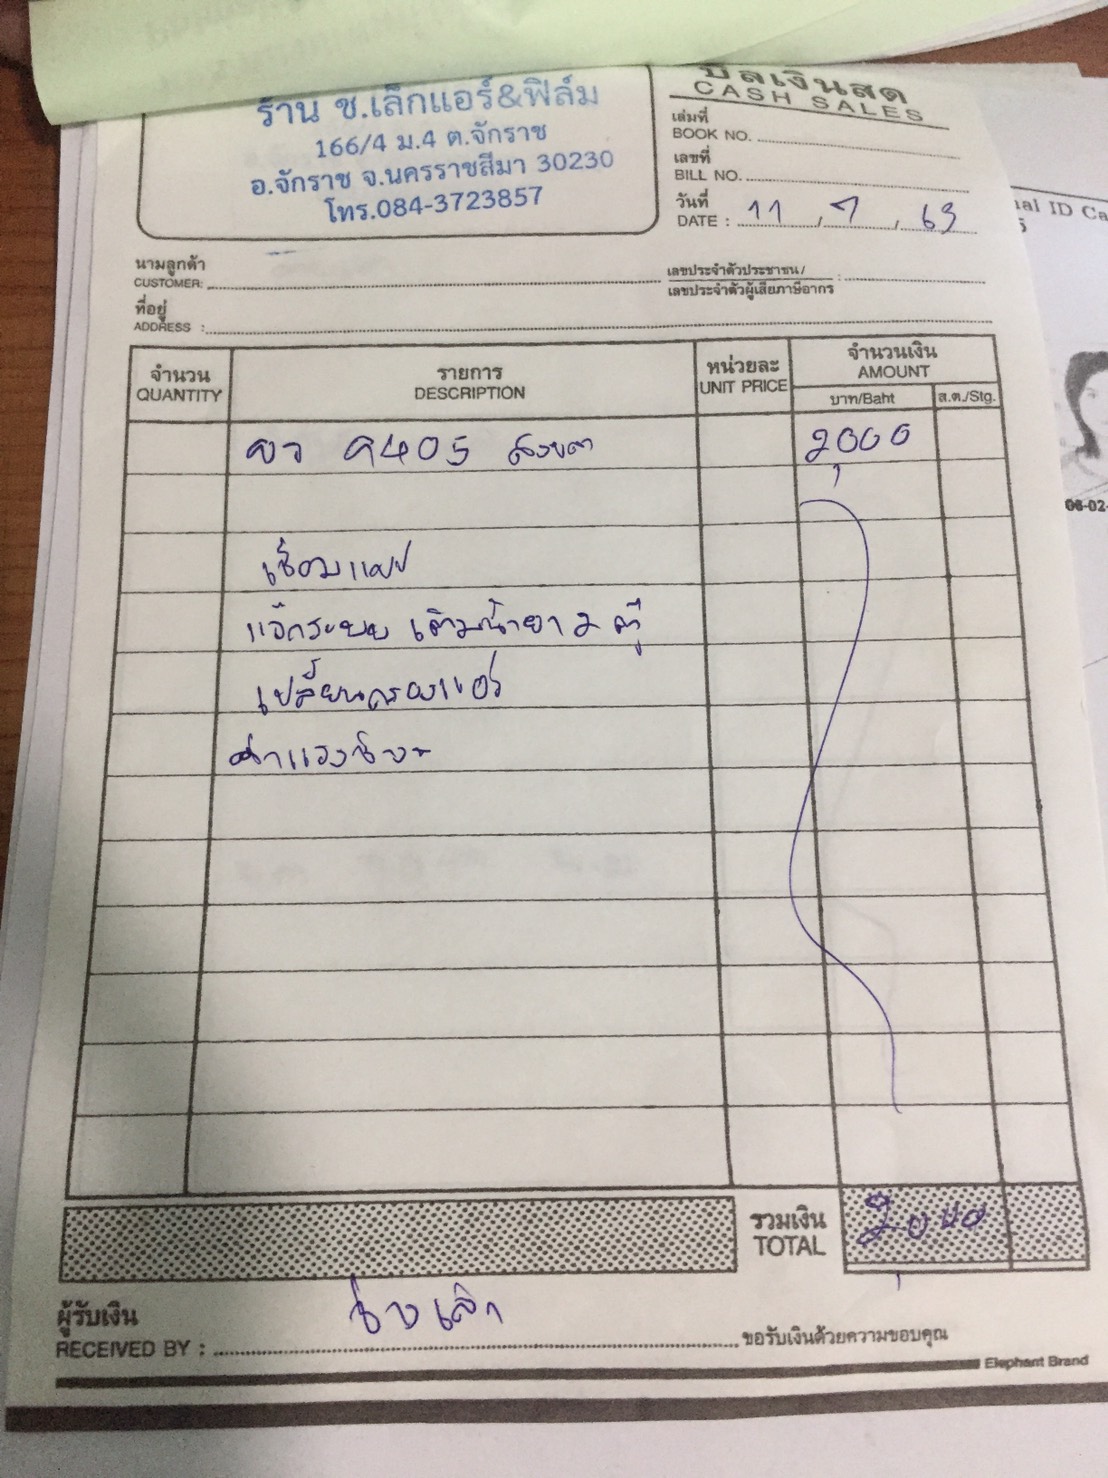 ร้าน ช.เล็กแอร์&ฟิล์ม
166/4 ม.4 ต.จักราช
อ.จักราช จ.นครราชสีมา 30230
โทร.084-3723857
บิลเงินสด
CASH SALES
เล่มที่
BOOK NO.
เลขที่
BILL NO.
วันที่
DATE : 11 / 7 / 63
นามลูกค้า
CUSTOMER:
เลขประจำตัวประชาชน/
เลขประจำตัวผู้เสียภาษีอากร :
ที่อยู่
ADDRESS :
จำนวน
QUANTITY
รายการ
DESCRIPTION
หน่วยละ
UNIT PRICE
จำนวนเงิน
AMOUNT
บาท/Baht
ส.ต./Stg.
9405 สงขลา 2,000
เชื่อมแปป
แว๊กระบบ เติมน้ำยา 2 ตู้
เปลี่ยนกรองแอร์
ค่าแรงช่าง
รวมเงิน
TOTAL
2,000
ผู้รับเงิน
RECEIVED BY : ช่างเล็ก
ขอรับเงินด้วยความขอบคุณ
Elephant Brand
nal ID Ca
5
06-02-